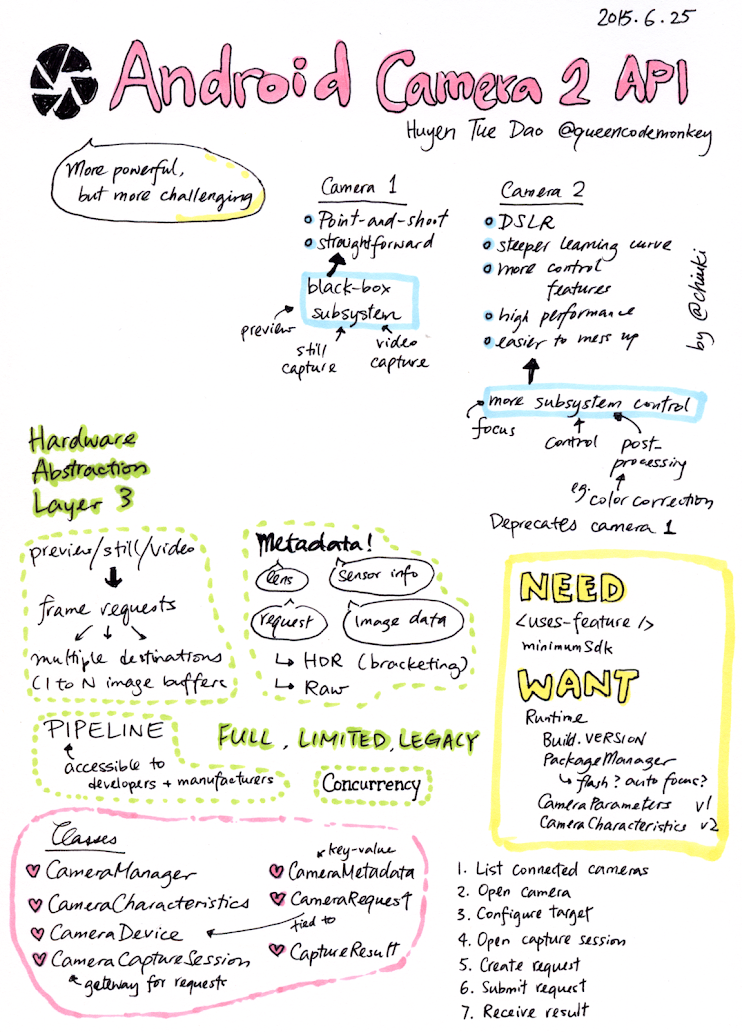 2015.6.25
Android Camera 2 API
Huyen Tue Dao @queencodemonkey
More powerful,
but more challenging
Camera 1
Point-and-shoot
straightforward
black-box
subsystem
preview
still
capture
video
capture
Camera 2
DSLR
steeper learning curve
more control
features
high performance
easier to mess up
more subsystem control
focus
control
post-
processing
eg. color correction
Deprecates camera 1
by @chiuki
Hardware
Abstraction
Layer 3
preview/still/video
frame requests
multiple destinations
(1 to N image buffers
Metadata!
lens
sensor info
request
image data
HDR (bracketing)
Raw
PIPELINE
accessible to
developers + manufacturers
FULL, LIMITED, LEGACY
Concurrency
NEED
<uses-feature />
minimumSdk
WANT
Runtime
Build.VERSION
PackageManager
flash? auto focus?
CameraParameters v1
CameraCharacteristics v2
Classes
CameraManager
CameraCharacteristics
CameraDevice
CameraCaptureSession
gateway for requests
key-value
CameraMetadata
CameraRequest
tied to
CaptureResult
1. List connected cameras
2. Open camera
3. Configure target
4. Open capture session
5. Create request
6. Submit request
7. Receive result